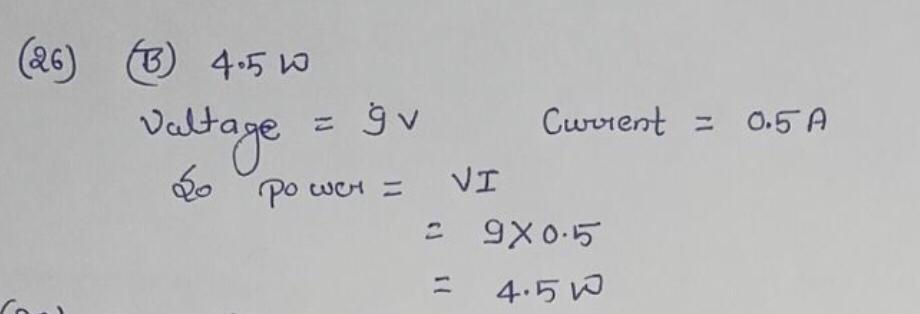 (26) (B) 4.5 W
Valtage = 9V Current = 0.5 A
So power = VI
= 9X0.5
= 4.5 W